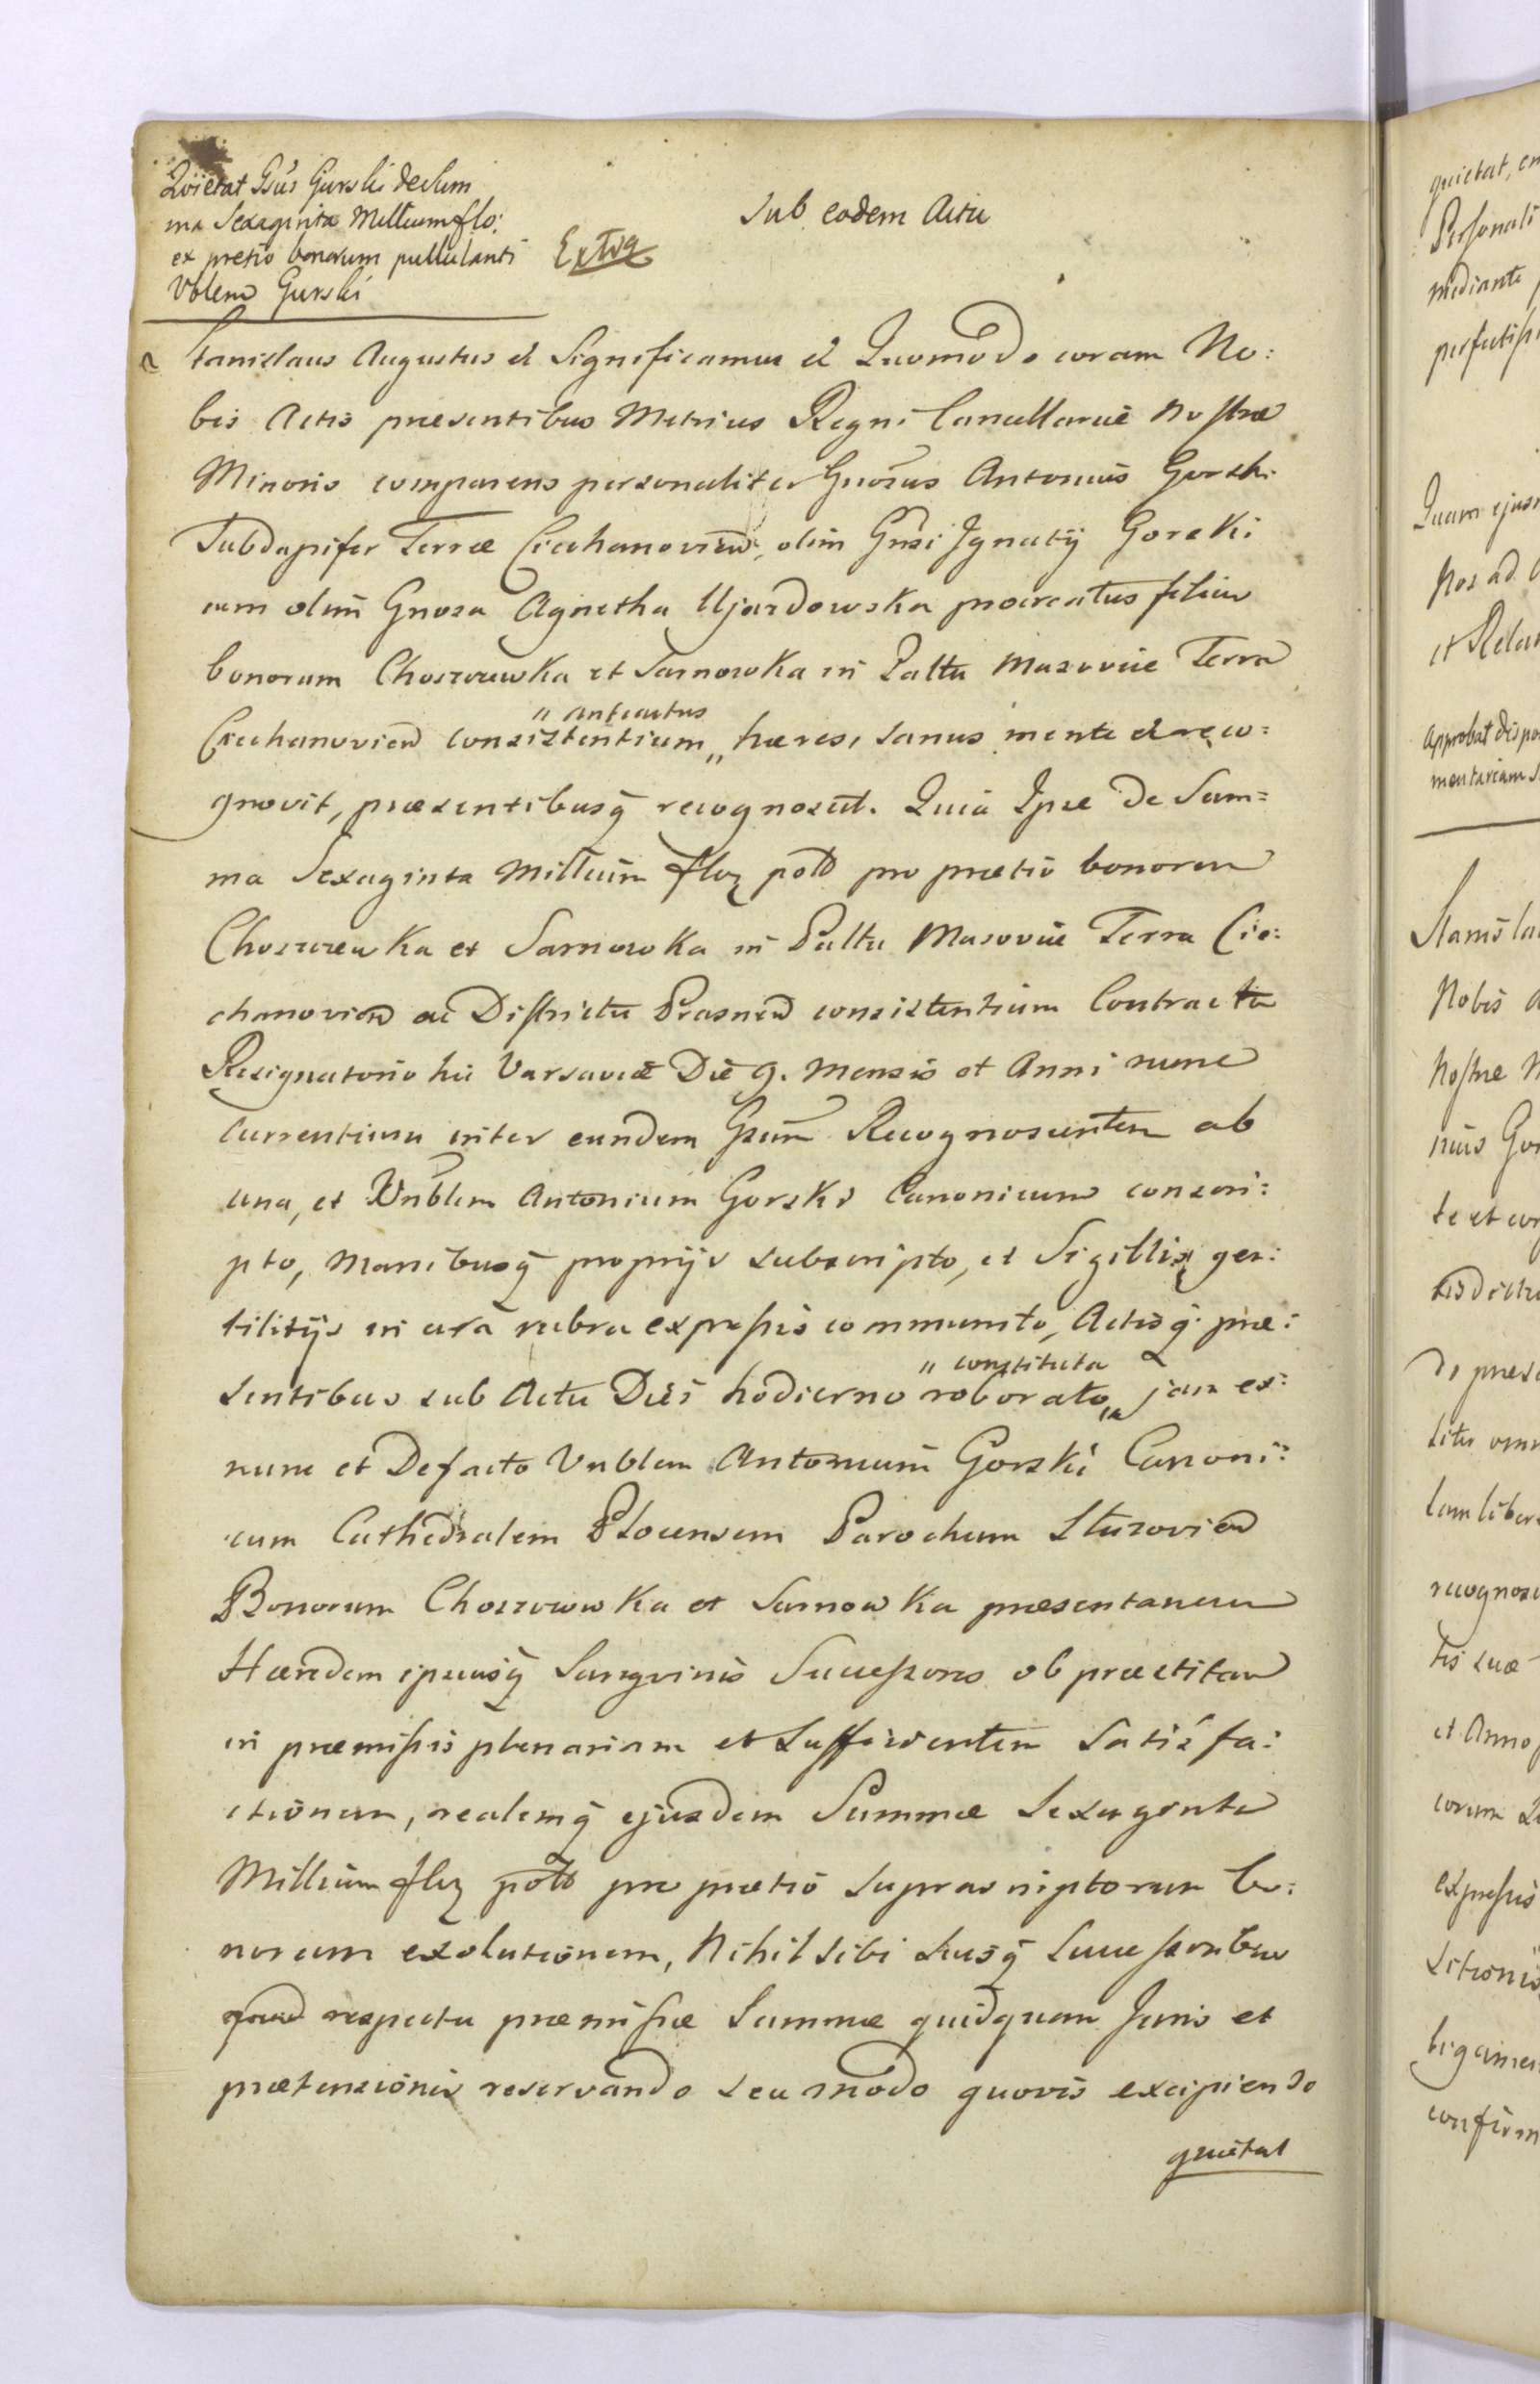 Quietat Gsus Gurski de Sum
ma Sexaginta Millium flo:
ex pretio bonorum pullulanti
Vblem Gurski
Sub eodem Actu
Extra
Stanislaus Augustus et Significamus et Quomodo coram No:
bis Actis praesentibus Metrices Regni Cancellariae Nostrae
Minoris comparens personaliter Gnosus Antonius Gorski
Subdapifer Terrae Ciechanovien, olim Gnsi Ignatij Gorski
cum olim Gnosa Agnetha Ujazdowska procreatus filius
bonorum Choszczewka et Sarnowka in Palttu Masoviae Terra
" anteactus
Ciechanovien consistentium „ haeres, sanus mente et reco=
gnovit, praesentibusq recognoscit. Quia Ipse de Sum=
ma Sexaginta Millium flor poll pro praetio bonorum
Choszczewka et Sarnowka in Palttu Masoviae Terra Cie:
chanovien ac Districtu Prasnen consistentium Contractu
Resignatorio hic Varsaviae Die 9. Mensis et Anni nunc
currentium inter eundem Gsum Recognoscentem ab
una, et Vnblem Antonium Gorski Canonicum conscri:
pto, Manibusq proprijs subscripto, et Sigillis gen:
tilitijs in cera rubra expressis communito, Actisq prae:
" constituta
sentibus sub Actu Diei hodierno roborato „ jam ex:
nunc et Defacto Vnblem Antonium Gorski Canoni:
cum Cathedralem Plocensem Parochum Sturovien
Bonorum Choszczowka et Sarnowka praesentaneum
Haeredem ipsiusq Sangvinis Successores ob praestitam
in praemissis plenariam et Sufficientem Satisfa:
ctionem, realemq ejusdem Summae Sexaginta
Millium flor poll pro praetio suprascriptorum bo:
norum exolutionem, Nihil sibi Suisq Successoribus
respectu praemissae Summae quidquam Juris et
praetensionis reservando seu modo quovis excipiendo
quietat
quietat,
Personali
mediante
perfectiss
Quam ejus
Nos ad
et Relat
Approbat dispo
mentariam
Stanisla
Nobis
Nostrae
nius Gor
te et cor
de praes
recognos
tis suae
et Anno
coram
expressis
sitionis
confirm